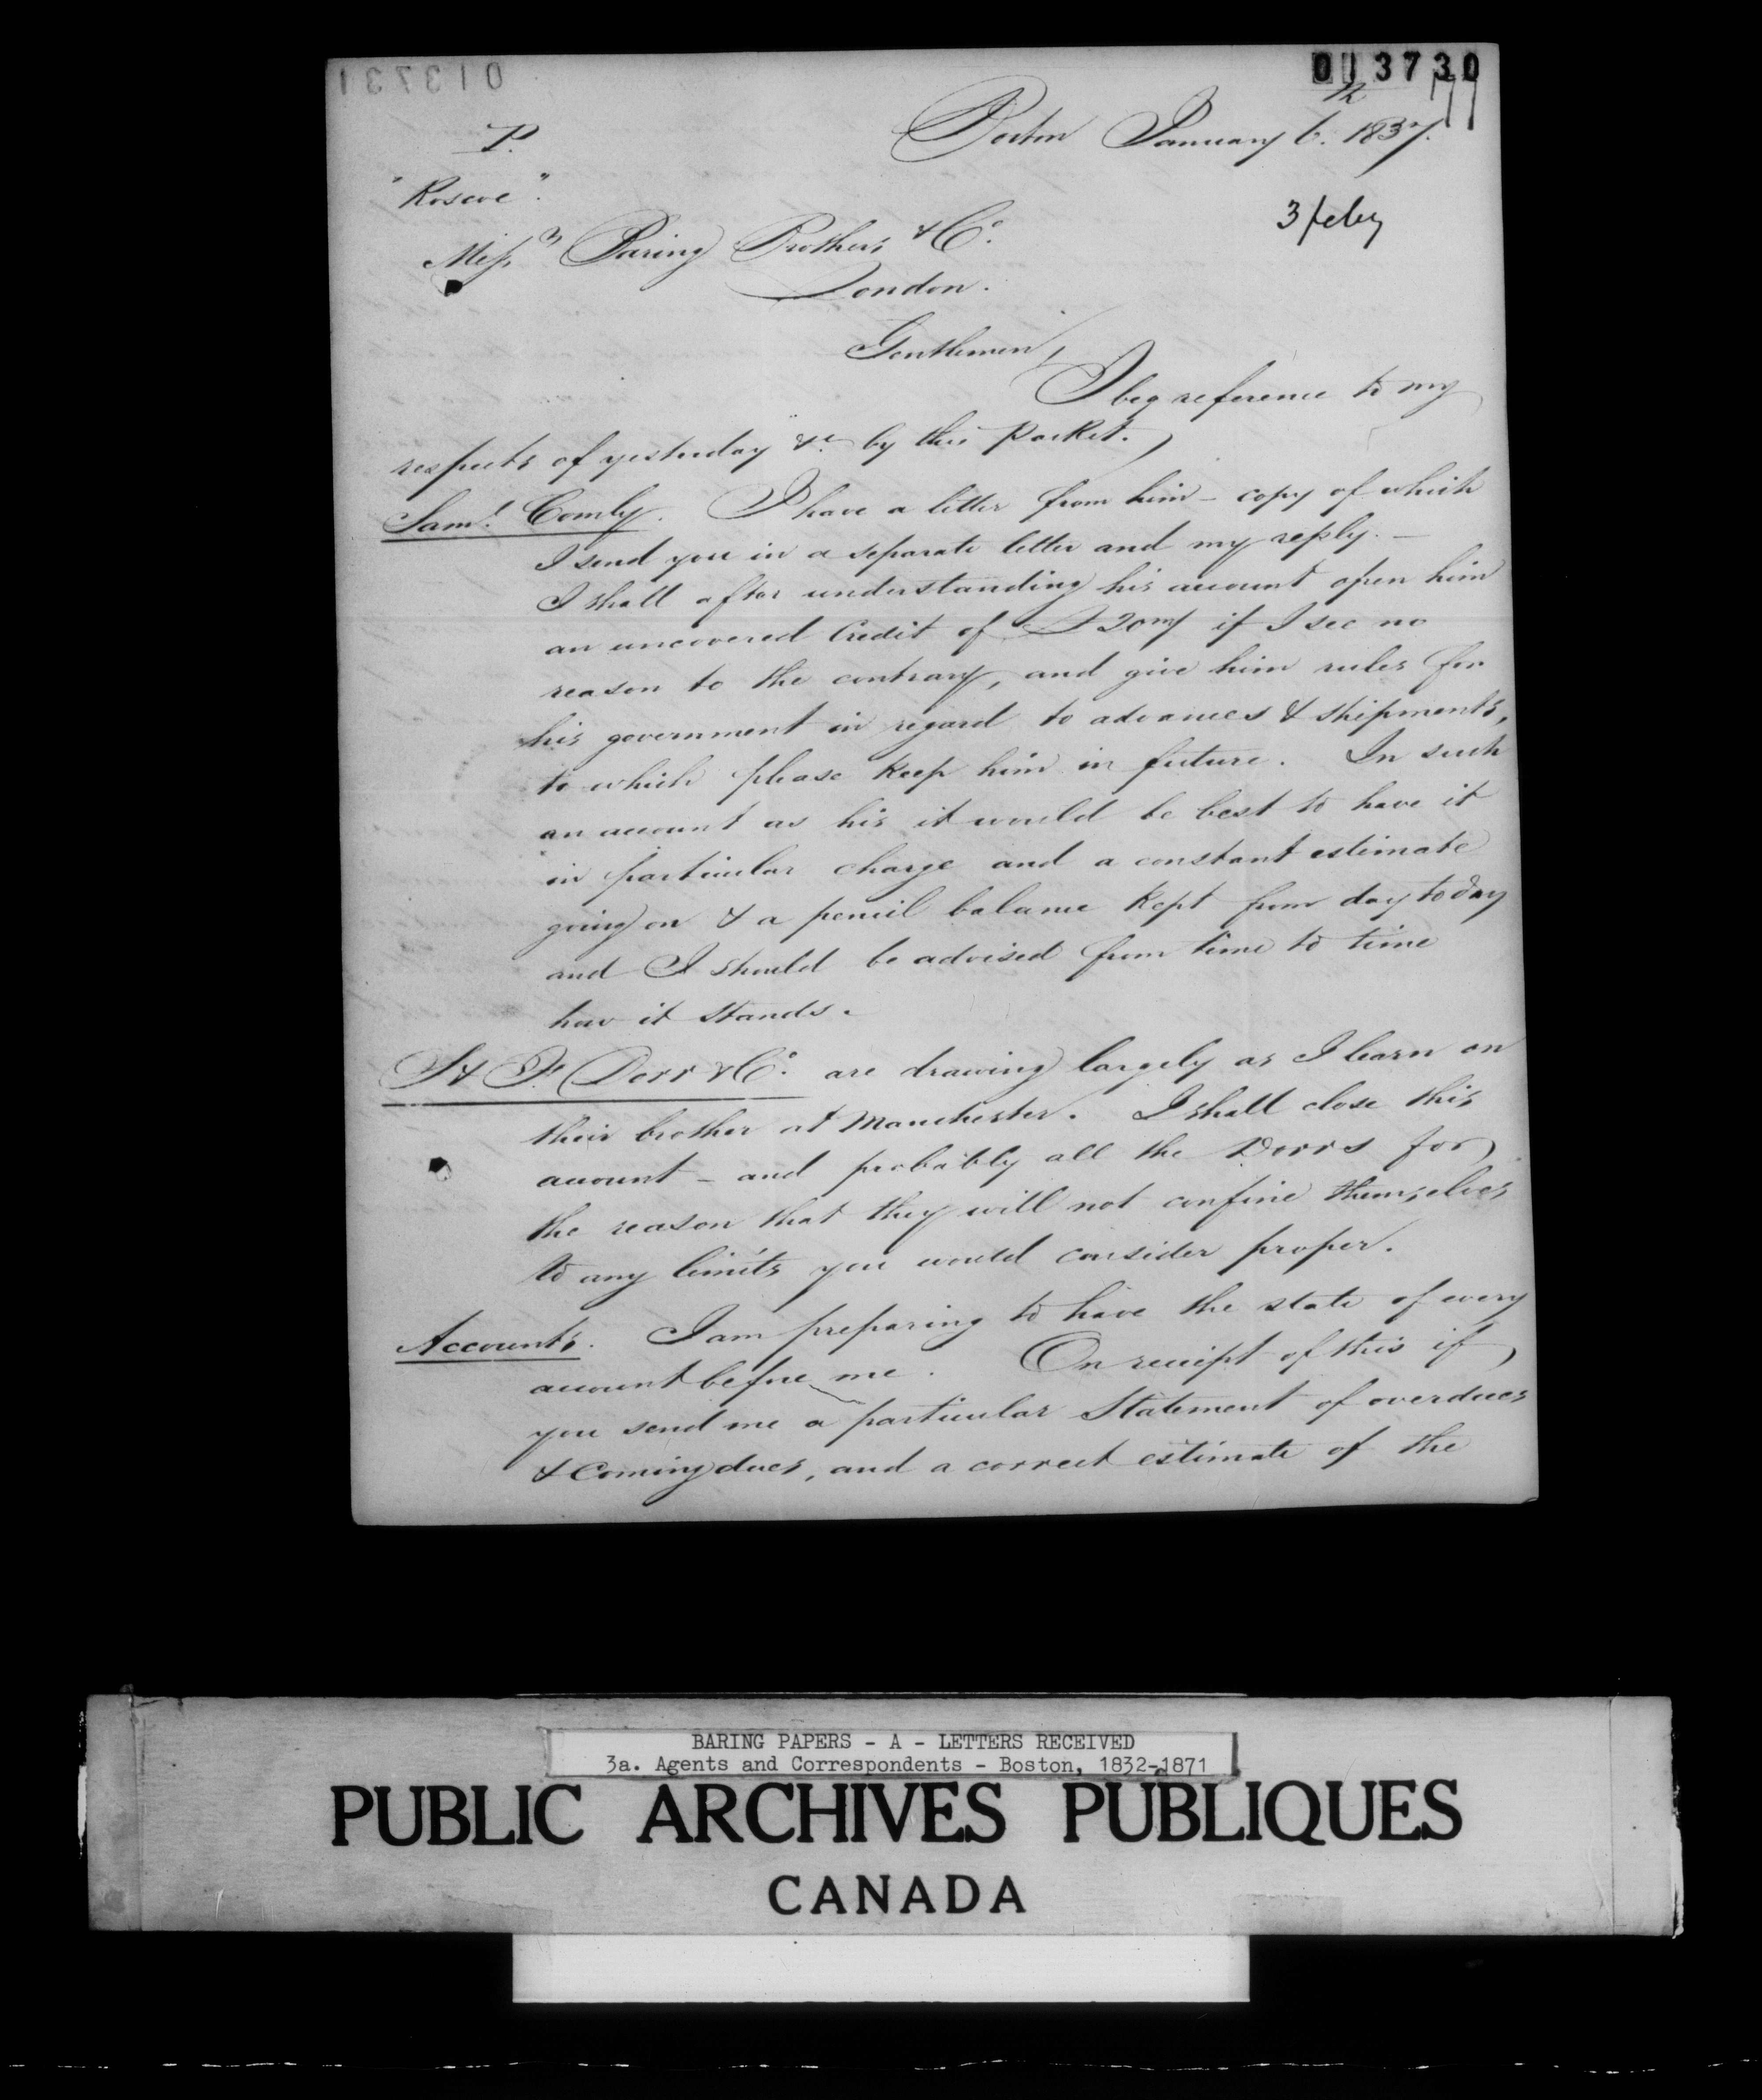 013730
177
P.
Boston January 6. 1837.
"Roscoe".
3 feby
Mess.rs Baring Brothers & Co.
London.
Gentlemen,
I beg reference to my
respects of yesterday &c. by this packet.
Saml. Comly. I have a letter from him – copy of which
I send you in a separate letter and my reply. –
I shall after understanding his account open him
an uncovered Credit of £20m/ if I see no
reason to the contrary, and give him rules for
his government in regard to advances & shipments,
to which please keep him in future. In such
an account as his it would be best to have it
in particular charge and a constant estimate
going on & a pencil balance kept from day to day
and I should be advised from time to time
how it stands.
S & F. Dorr & Co. are drawing largely as I learn on
their brother at Manchester. I shall close this
account – and probably all the Dorrs for
the reason that they will not confine themselves
to any limits you would consider proper.
Accounts. I am preparing to have the state of every
account before me. On receipt of this if
you send me a particular Statement of overdues
& Coming dues, and a correct estimate of the
BARING PAPERS - A - LETTERS RECEIVED
3a. Agents and Correspondents - Boston, 1832-1871
PUBLIC ARCHIVES PUBLIQUES
CANADA